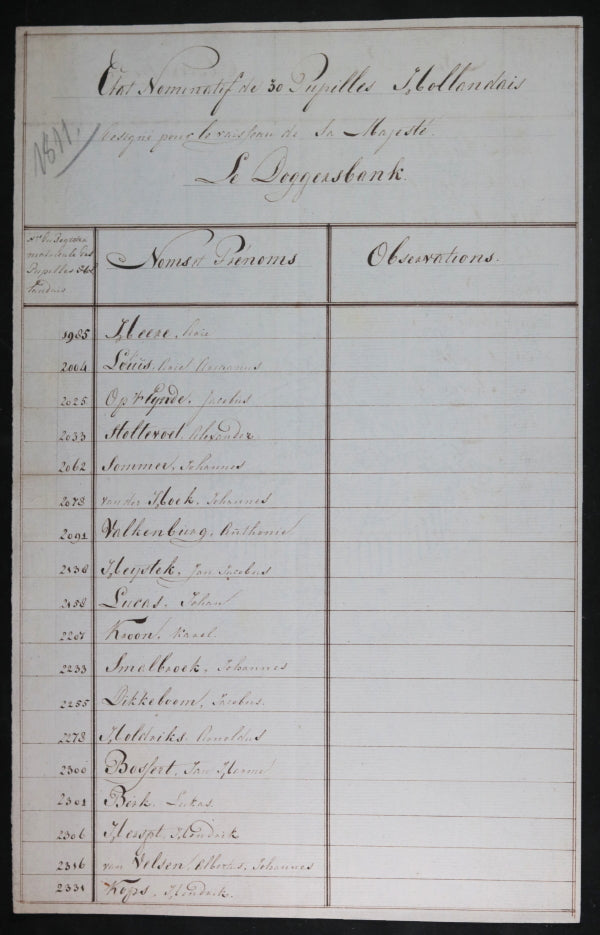 Etat Nominatif de 30 Pupilles Hollandais
1811.
désigné pour le vaisseau de Sa Majesté.
Le Doggersbank.
Pupilles
Noms et Prénoms
Observations.
1985 Heere,
2004 Louis,
2025 Op 't Eynde, Jacobus
2033 Holtevoet, Alexander
2062 Sommer, Johannes
2078 van der Hoek, Johannes
2091 Valkenburg, Anthonie
2138 Heystek, Jan Jacobus
2158 Lucas, Johan
2207 Kroon, Karel.
2233 Smalbroek, Johannes
2255 Dikkeboom, Jacobus.
2278 Holdriks, Arnoldus
2300 Bosfort, Jan Harme
2301 Berk, Lukas.
2306 Herspt, Hendrik
2316 van Gelsen, Albertus, Johannes
2331 Kops, Hendrik.